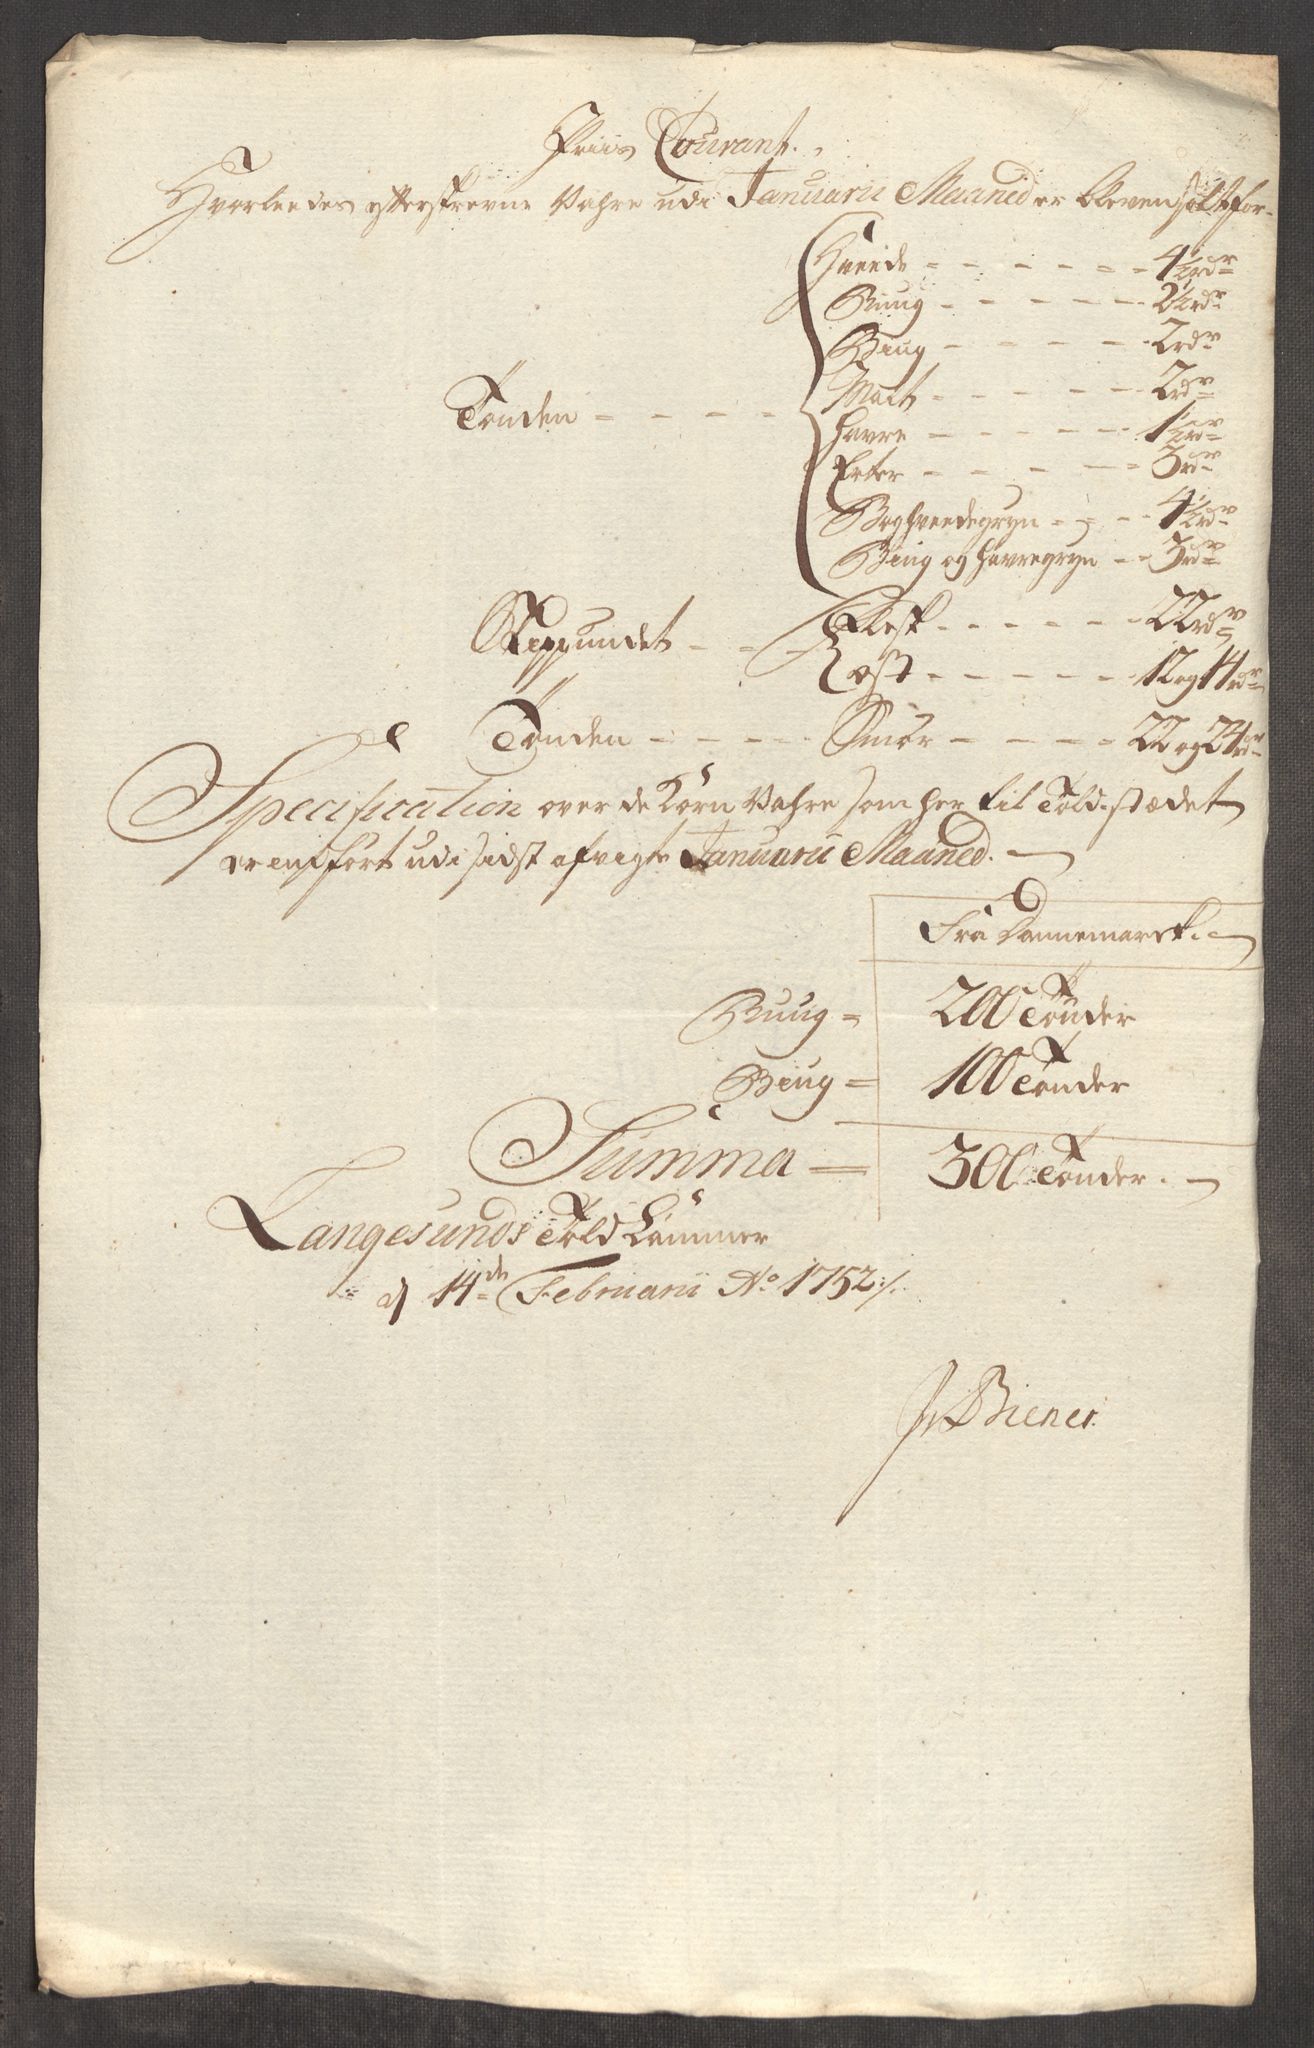 Priis Courant.
Hvorleedes efterskrevne Vahre udi Januarii Maaned er bleven solt for.
Hveede - - - - - - 4½ rdr
Ruug - - - - - - 2½ rdr
Biug - - - - - 2 rdr
Malt - - - - - 2 rdr
Tønden - - - -
Havre - - - - - 1½ rdr
Erter - - - - - 3 rdr
Boghveedegryn - - - 4½ rdr
Biug og Havregryn - - 3 rdr
Skippundet - - Flesk - - - - - - 22 rdr
Ost - - - - - 12 og 14 rdr
Tønden - - - - - Smør - - - - 22 og 24 rdr
Specification over de Korn Vahre som her til Toldstædet
er indført udi sidst afvigte Januarii Maaned.
Fra Dannemarck.
Ruug = 200 Tønder
Biug = 100 Tønder
Summa = 300 Tønder.
Langesunds Told Cammer
d 14de Februarii Ao 1752 ./.
Biener.